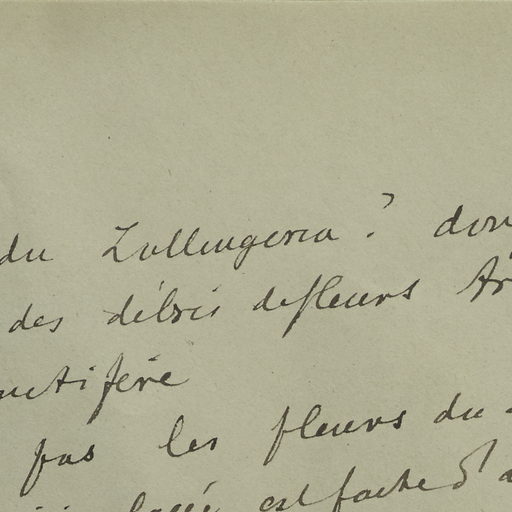 du Zollingeria? don
des débris de fleurs
uctifère
pas les fleurs du
est